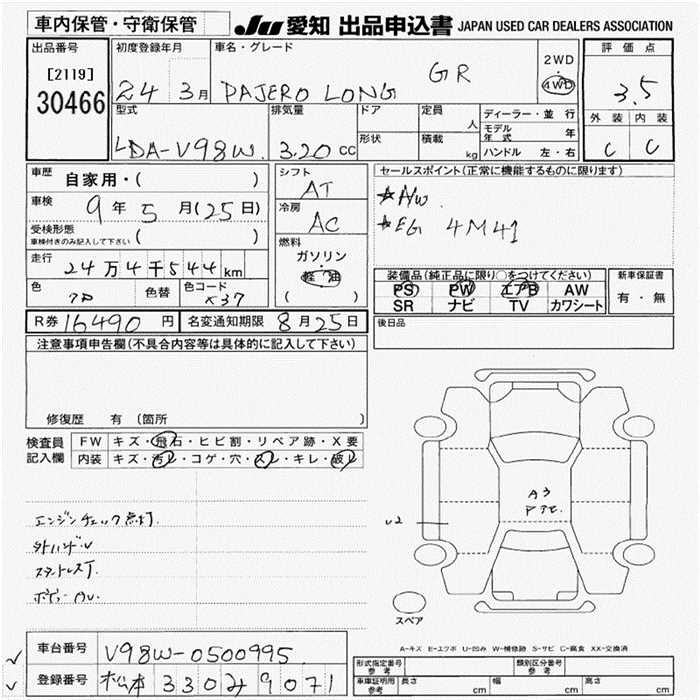 車内保管・守衛保管
JU 愛知 出品申込書 JAPAN USED CAR DEALERS ASSOCIATION
出品番号
[2119]
30466
初度登録年月
24 3月
車名・グレード
PAJERO LONG GR
2WD
4WD
評価点
3.5
外装 内装
C C
型式
LDA-V98W
排気量
3.20 CC
ドア
形状
定員
人
積載
kg
ディーラー・並行
モデル年式 年
ハンドル 左・右
車歴
自家用・( )
車検
9年 5月 (25日)
受検形態
車検付きのみ記入して下さい ( )
走行
24万4千544km
色
色替
色コード
K37
シフト
AT
冷房
AC
燃料
ガソリン
軽油
( )
セールスポイント(正常に機能するものに限ります)
★A/W
★EG 4M41
装備品(純正品に限り○をつけてください)
PS PW エアB AW
SR ナビ TV カワシート
新車保証書
有・無
R券 16490円 名変通知期限 8月25日
後日品
注意事項申告欄(不具合内容等は具体的に記入して下さい)
修復歴 有 (箇所 )
検査員
記入欄
FW キズ・飛石・ヒビ割・リペア跡・X要
内装 キズ・汚レ・コゲ・穴・スレ・キレ・破レ
エンジンチェック点灯.
ボデーAU.
A3
U2
スペア
A-キズ E-エクボ U-凹み W-補修跡 S-サビ C-腐食 XX-交換済
車台番号 V98W-0500995
登録番号 松本 330 み 9071
形式指定番号
参考
類別区分番号
参考
車庫証明用
参考
長さ cm 幅 cm 高さ cm